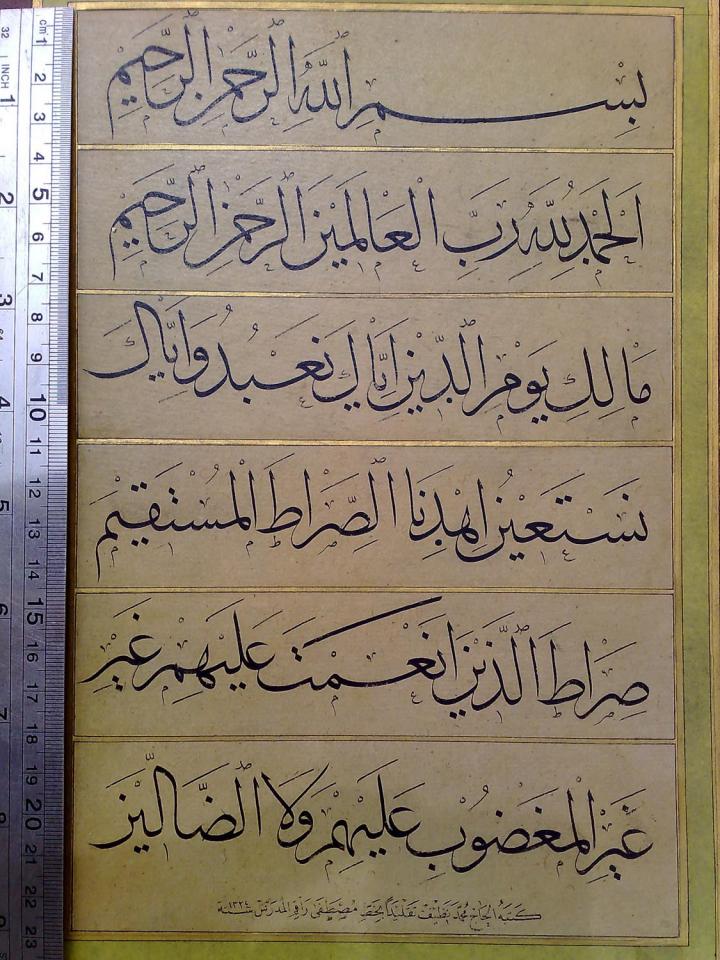 بِسْمِ اللَّهِ الرَّحْمٰنِ الرَّحِيمِ
اَلْحَمْدُ لِلَّهِ رَبِّ الْعَالَمِينَ الرَّحْمٰنِ الرَّحِيمِ
مَالِكِ يَوْمِ الدِّينِ اِيَّاكَ نَعْبُدُ وَاِيَّاكَ
نَسْتَعِينُ اِهْدِنَا الصِّرَاطَ الْمُسْتَقِيمَ
صِرَاطَ الَّذِينَ اَنْعَمْتَ عَلَيْهِمْ غَيْرِ
غَيْرِ الْمَغْضُوبِ عَلَيْهِمْ وَلَا الضَّالِّينَ
كتبه الحاج محمد نظيف تقليداً بخط مصطفى راقم المدرس سنة ١٣٢٤
cm 1 2 3 4 5 6 7 8 9 10 11 12 13 14 15 16 17 18 19 20 21 22 23
32 INCH 1 2 3 4 5 6 7